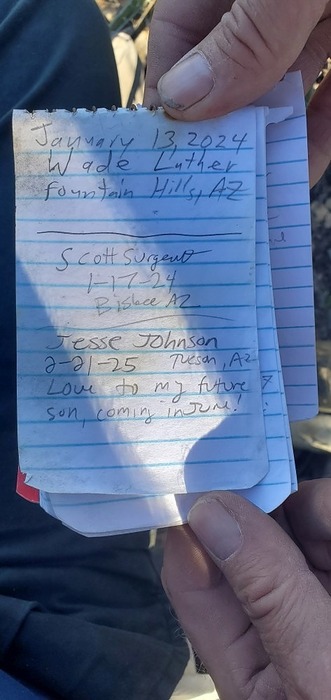 January 13, 2024
Wade Luther
Fountain Hills, AZ
Scott Surgent
1-17-24
Bisbee AZ
Jesse Johnson
2-21-25 Tucson, AZ
Love to my future
son, coming in June!